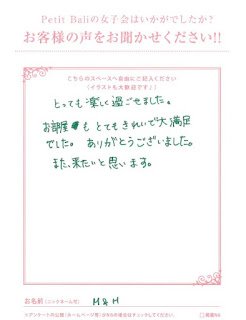 Petit Baliの女子会はいかがでしたか?
お客様の声をお聞かせください!!
こちらのスペースへ自由にご記入ください
(イラストも大歓迎です♪)
とっても楽しく過ごせました。
お部屋も とてもきれいで大満足
でした。 ありがとうございました。
また、来たいと思います。
お名前(ニックネーム可) M&M
※アンケートの公開(ホームページ等)がNGの場合はチェックしてください。 □掲載NG